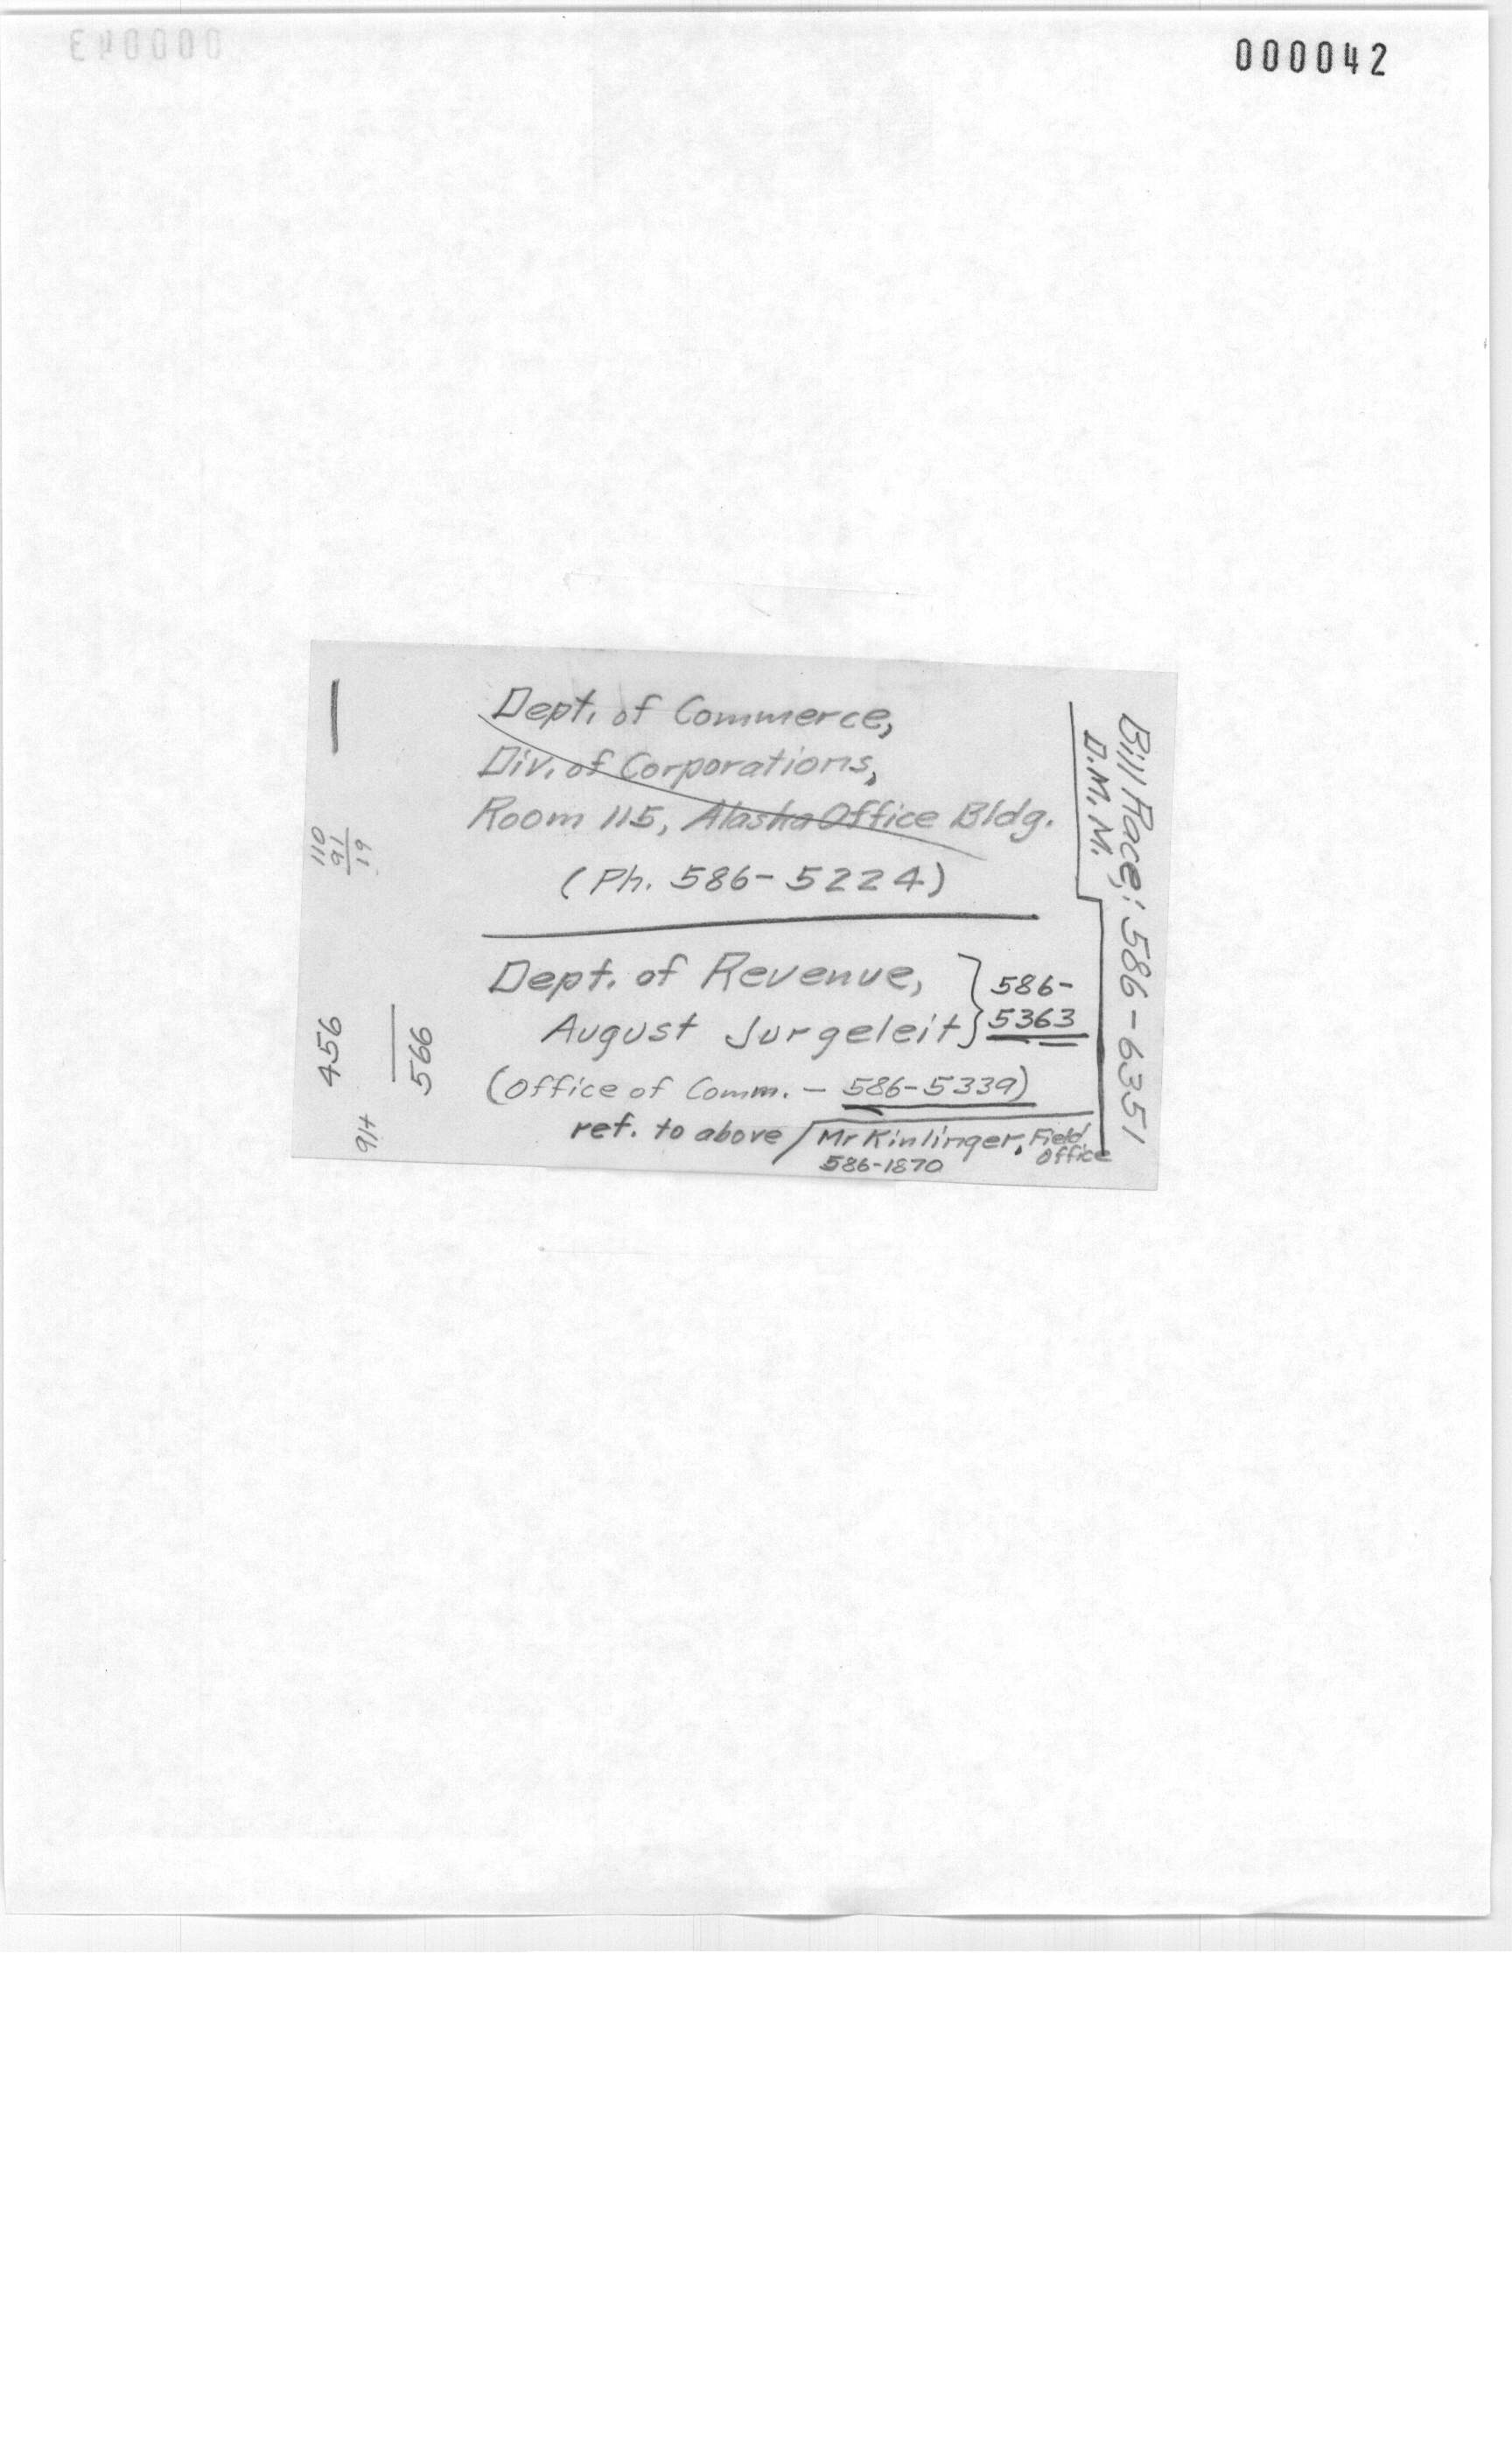 000042
000043
Dept. of Commerce,
Div. of Corporations,
Room 115, Alaska Office Bldg.
(Ph. 586-5224)
Dept. of Revenue,
August Jurgeleit
586-
5363
(Office of Comm. - 586-5339)
ref. to above
Mr Kinlinger, Field
Office
586-1870
Bill Race; : 586-6351
D.M.M.
110
91
19
456
566